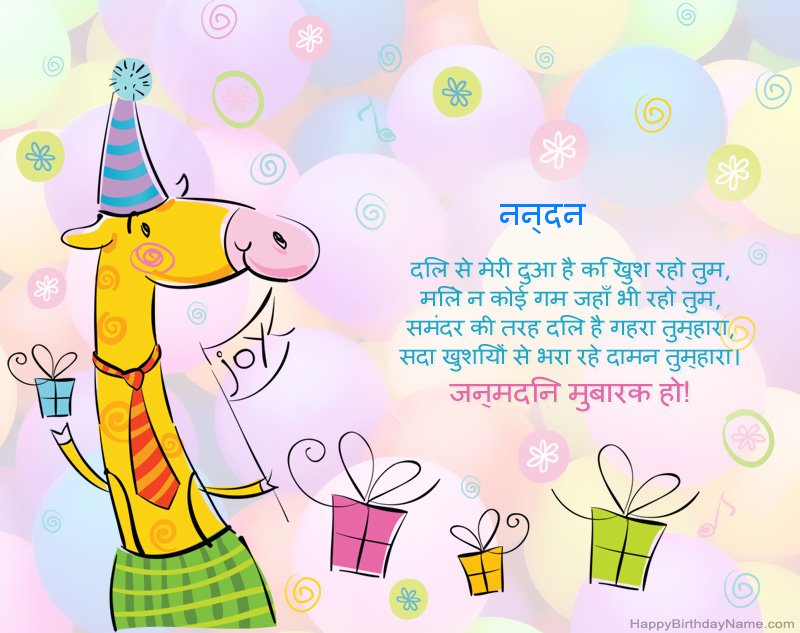 नन्दन
दिल से मेरी दुआ है कि खुश रहो तुम,
मिले न कोई गम जहाँ भी रहो तुम,
समंदर की तरह दिल है गहरा तुम्हारा,
सदा खुशियों से भरा रहे दामन तुम्हारा।
जन्मदिन मुबारक हो!
joy
HappyBirthdayName.com